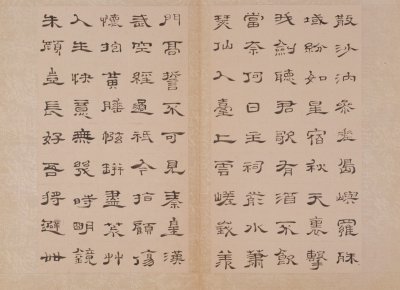 散沙汭參差島嶼羅
域紛如星宿秋天裏擊
我劍聽君歌有酒不飲
當奈何日主祠前水蕭
瑟仙人臺上雲嵯峩羨
門高誓不可見秦皇漢
武空經過祇今指顧傷
懷抱黃腄惤盡荒艸
人生快意無幾時明鏡
朱顏豈長好吾将避世